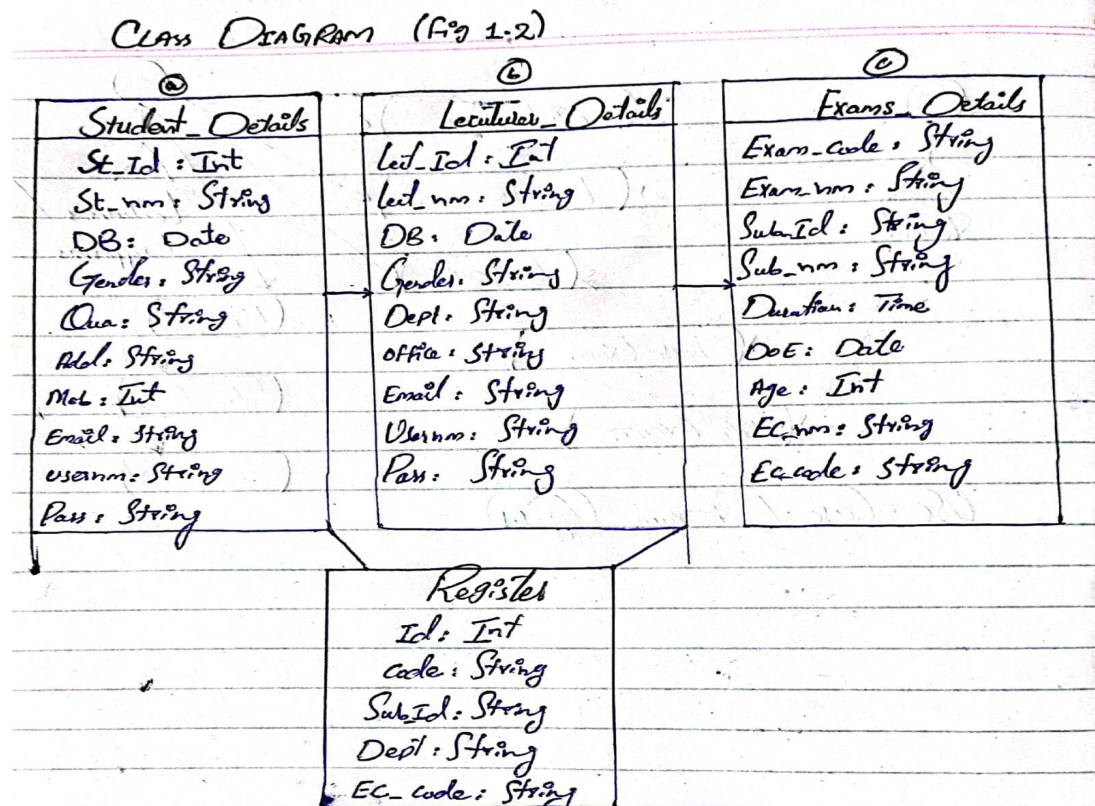 CLASS DIAGRAM (Fig 1.2)
a
Student_Details
St_Id : Int
St_nm : String
DB : Date
Gender : String
Qua : String
Add : String
Mob : Int
Email : String
usernm : String
Pass : String
b
Lecuturer_Details
Lect_Id : Int
Lect_nm : String
DB : Date
Gender : String
Dept : String
office : String
Email : String
Usernm : String
Pass : String
c
Exams_Details
Exam_code : String
Exam_nm : String
Sub_Id : String
Sub_nm : String
Duration : Time
DoE : Date
Age : Int
EC_nm : String
Ec_code : String
Register
Id : Int
code : String
Sub_Id : String
Dept : String
EC_code : String